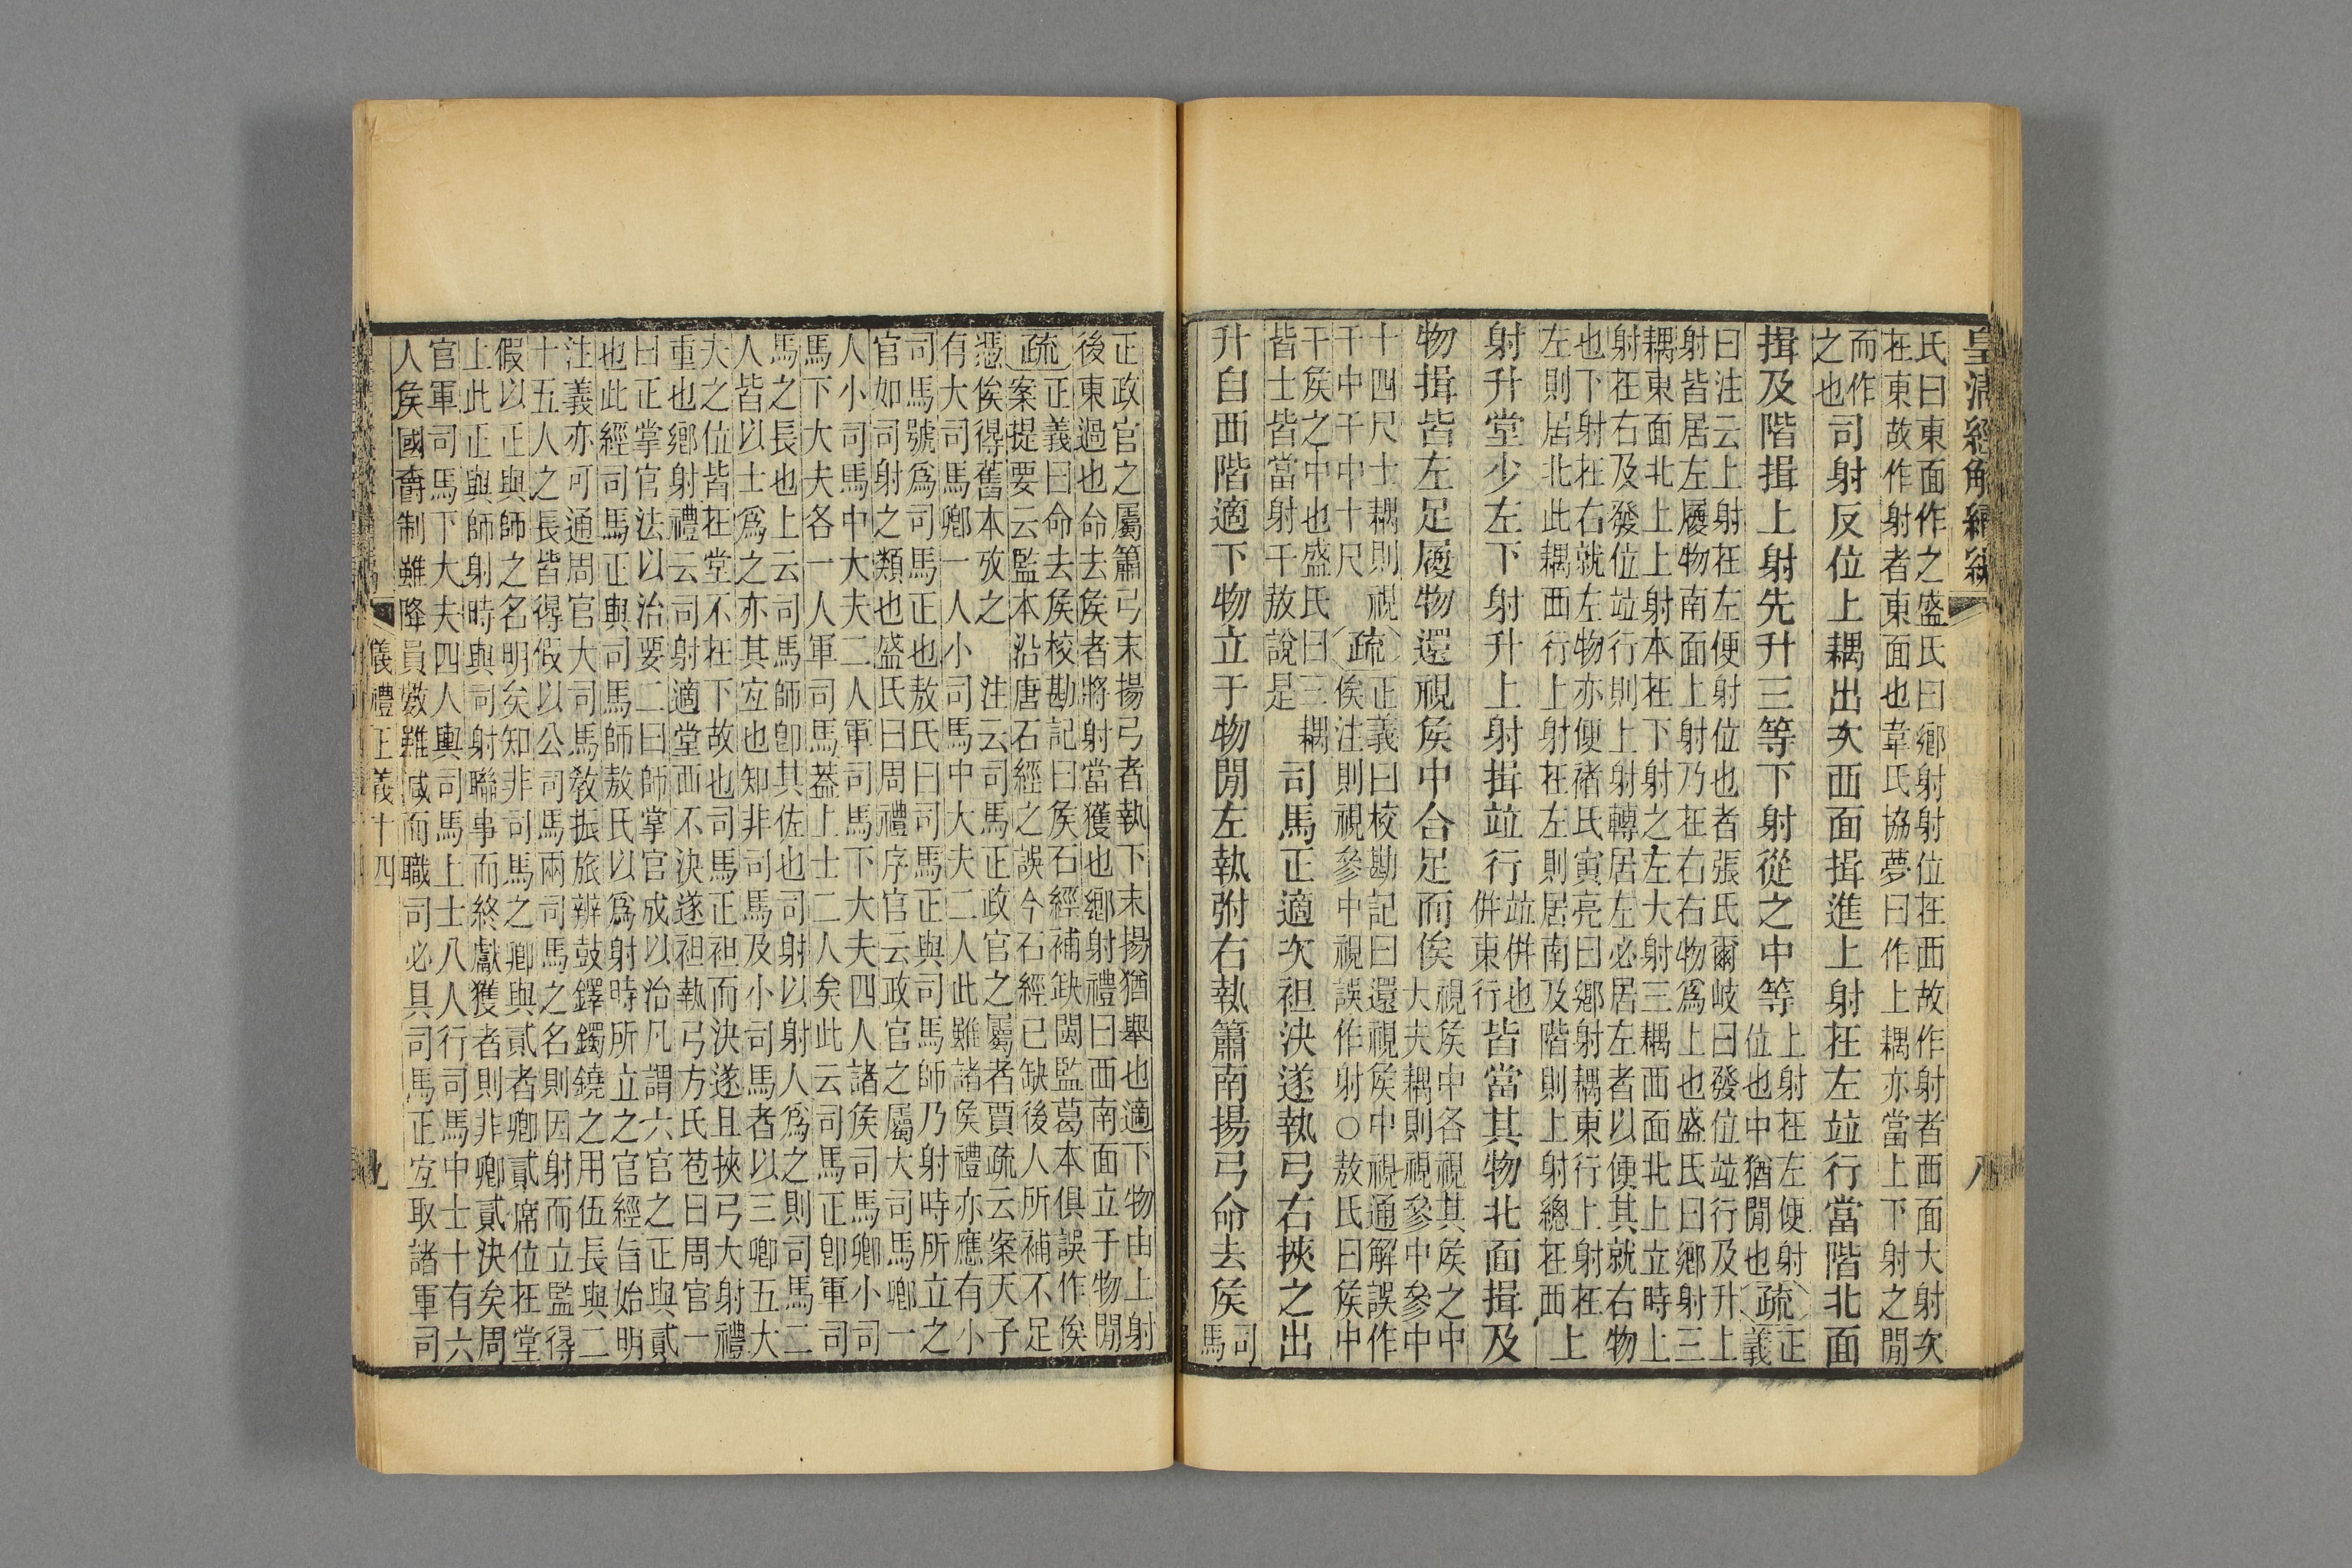 皇清經解續編 八
氏曰東面作之盛氏曰鄉射射位在西故作射者西面大射次
在東故作射者東面也韋氏協夢曰作上耦亦當上下射之閒
而作
之也
司射反位上耦出次西面揖進上射在左竝行當階北面
揖及階揖上射先升三等下射從之中等
上射在左便射
位也中猶閒也
疏
正
義
曰注云上射在左便射位也者張氏爾岐曰發位竝行及升上
射皆居左履物南面上射乃在右右物爲上也盛氏曰鄉射三
耦東面北上上射本在下射之左大射三耦西面北上立時上
射在右及發位竝行則上射轉居左必居左者以便其就右物
也下射在右就左物亦便褚氏寅亮曰鄉射耦東行上射在
左則居北此耦西行上射在左則居南及階則上射總在西
上
射升堂少左下射升上射揖竝行
竝併也
併東行
皆當其物北面揖及
物揖皆左足履物還視侯中合足而俟
視侯中各視其侯之中
大夫耦則視參中參中
十四尺士耦則視
干中干中十尺
疏
正義曰校勘記曰還視侯中視通解誤作
侯注則視參中視誤作射○敖氏曰侯中
干侯之中也盛氏曰三耦
皆士皆當射干敖說是
司馬正適次袒決遂執弓右挾之出
升自西階適下物立于物閒左執弣右執簫南揚弓命去侯
司
馬
正政官之屬簫弓末揚弓者執下末揚猶舉也適下物由上射
後東過也命去侯者將射當獲也鄉射禮曰西南面立于物閒
疏
正義曰命去侯校勘記曰侯石經補缺閩監葛本俱誤作俟
案提要云監本沿唐石經之誤今石經已缺後人所補不足
憑俟得舊本攷之 注云司馬正政官之屬者賈疏云案天子
有大司馬卿一人小司馬中大夫二人此雖諸侯禮亦應有小
司馬號爲司馬正也敖氏曰司馬正與司馬師乃射時所立之
官如司射之類也盛氏曰周禮序官云政官之屬大司馬卿一
人小司馬中大夫二人軍司馬下大夫四人諸侯司馬卿小司
馬下大夫各一人軍司馬葢上士二人矣此云司馬正卽軍司
馬之長也上云司馬師卽其佐也司射以射人爲之則司馬二
人皆以士爲之亦其宐也知非司馬及小司馬者以三卿五大
夫之位皆在堂不在下故也司馬正袒而決遂且挾弓大射禮
重也鄉射禮云司射適堂西不決遂袒執弓方氏苞曰周官一
曰正掌官法以治要二曰師掌官成以治凡謂六官之正與貳
也此經司馬正與司馬師敖氏以爲射時所立之官經旨始明
注義亦可通周官大司馬敎振旅辨鼓鐸鐲鐃之用伍長與二
十五人之長皆得假以公司馬兩司馬之名則因射而立監得
假以正與師之名明矣知非司馬之卿與貳者卿貳席位在堂
上此正與師射時與司射聯事而終獻獲者則非卿貳決矣周
官軍司馬下大夫四人輿司馬上士八人行司馬中士十有六
人侯國爵制雖降員數雖減而職司必具司馬正宐取諸軍司
儀禮正義十四 九